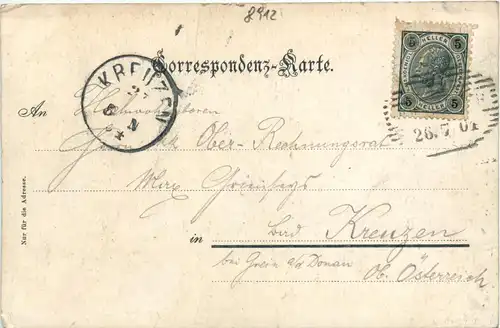 8912
Correspondenz-Karte.
5 HELLER 5
5 HELLER 5
KREUZEN
27
26.7.01
An Hochwohlgeboren
Ober-Rechnungsrat
Max
Bad Kreuzen
in
bei Grein a/d Donau
Ob. Österreich
Nur für die Adresse.